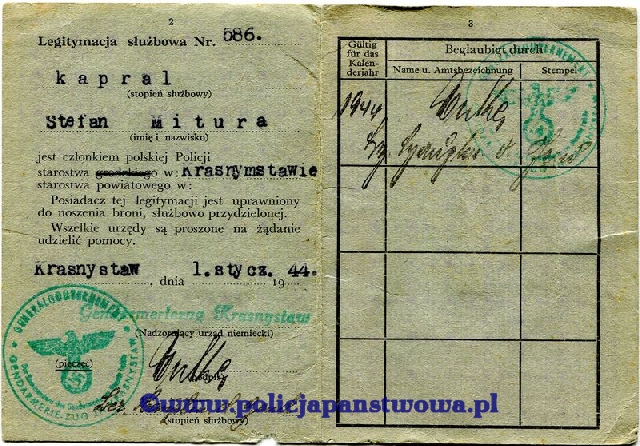 2
Legitymacja służbowa Nr. 586.
kapral
(stopień służbowy)
Stefan Mitura
(imię i nazwisko)
jest członkiem polskiej Policji
starostwa grodzkiego w: Krasnymstawie
starostwa powiatowego w:
Posiadacz tej legitymacji jest uprawniony
do noszenia broni, służbowo przydzielonej.
Wszelkie urzędy są proszone na żądanie
udzielić pomocy.
Krasnystaw, dnia 1.stycz. 1944.
Gendarmeriezug Krasnystaw
Nadzorujący urząd niemiecki)
(pieczęć)
(podpis)
(stopień służbowy)
GENERALGOUVERNEMENT
GENDARMERIE-ZUG
3
Gültig für das Kalenderjahr
Beglaubigt durch
Name u. Amtsbezeichnung
Stempel
1944
©www.policjapanstwowa.pl